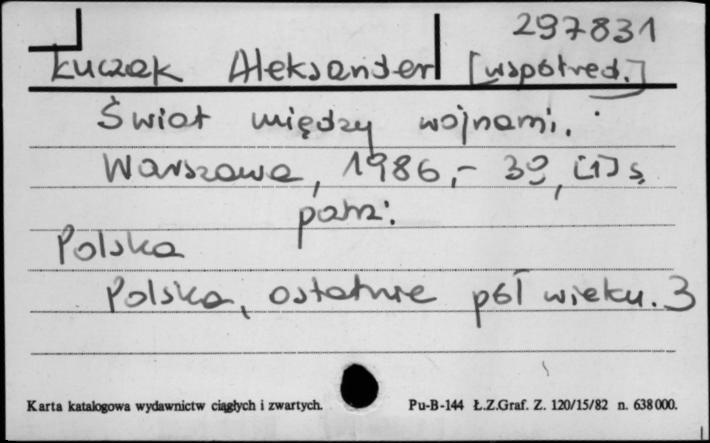 297831
Łuczak Aleksander [współred.]
Świat między wojnami.
Warszawa, 1986,- 39, [1] s.
patrz:
Polska
Polska, ostatnie pół wieku. 3
Karta katalogowa wydawnictw ciągłych i zwartych. Pu-B-144 Ł.Z.Graf. Z. 120/15/82 n. 638000.